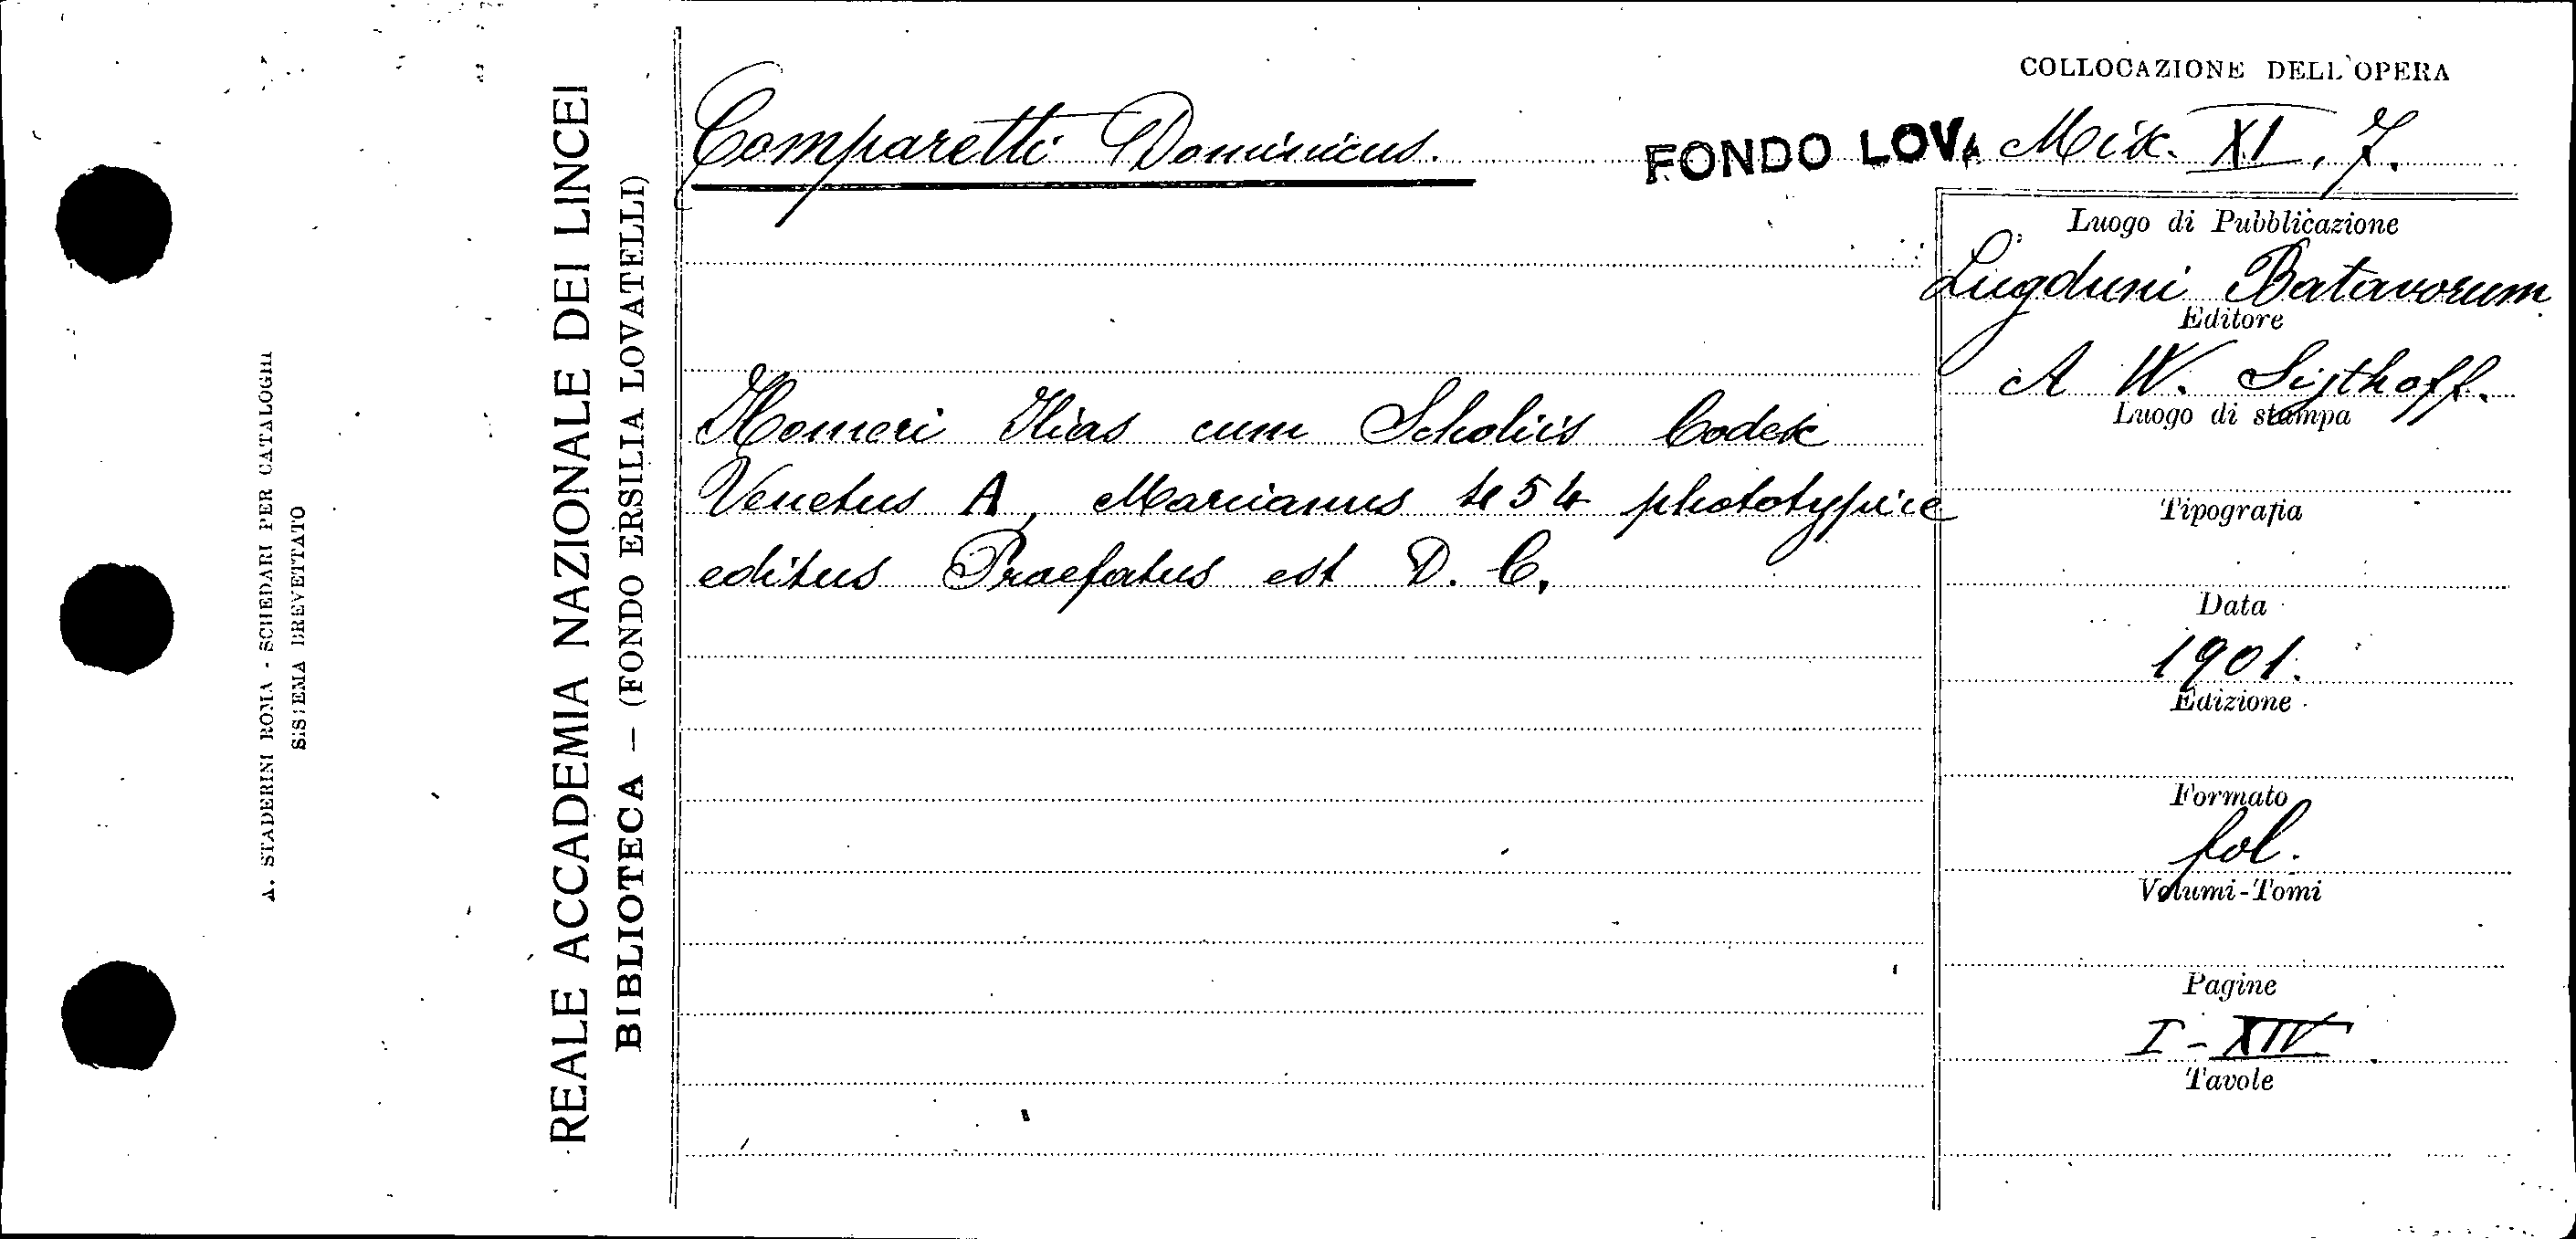 A. STADERINI ROMA - SCHEDARI PER CATALOGHI
SISTEMA BREVETTATO
REALE ACCADEMIA NAZIONALE DEI LINCEI
BIBLIOTECA — (FONDO ERSILIA LOVATELLI)
COLLOCAZIONE DELL'OPERA
Comparetti Dominicus. FONDO LOV. Mix. XI, 7.
Homeri Ilias cum Scholiis Codex
Venetus A, Marcianus 454 phototypice
editus Praefatus est D. C.
Luogo di Pubblicazione
Lugduni Batavorum
Editore
A W. Sijthoff.
Luogo di stampa
Tipografia
Data
1901.
Edizione
Formato
fol.
Volumi-Tomi
Pagine
I - XIV
Tavole